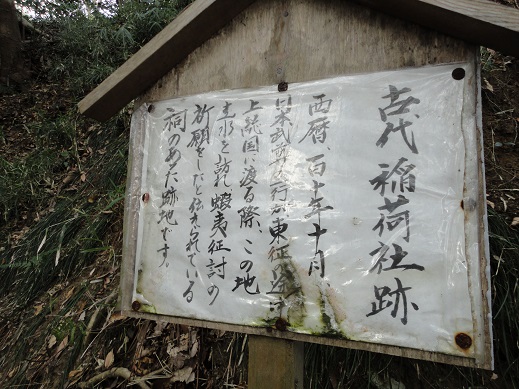 古代稲荷社跡
西暦、百十年十月
日本武尊の一行が東征の途
上総国に渡る際、この地
土水を訪れ蝦夷征討の
祈願をしたと伝えられている
祠のあった跡地です。